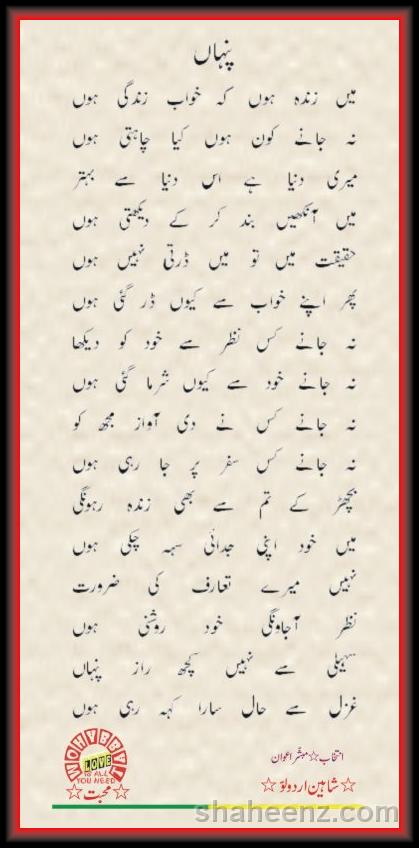 پنہاں
میں زندہ ہوں کہ خواب زندگی ہوں
نہ جانے کون ہوں کیا چاہتی ہوں
میری دنیا ہے اس دنیا سے بہتر
میں آنکھیں بند کر کے دیکھتی ہوں
حقیقت میں تو میں ڈرتی نہیں ہوں
پھر اپنے خواب سے کیوں ڈر گئی ہوں
نہ جانے کس نظر سے خود کو دیکھا
نہ جانے خود سے کیوں شرما گئی ہوں
نہ جانے کس نے دی آواز مجھ کو
نہ جانے کس سفر پر جا رہی ہوں
بچھڑ کے تم سے بھی زندہ رہونگی
میں خود اپنی جدائی سہہ چکی ہوں
نہیں میرے تعارف کی ضرورت
نظر آجاونگی خود روشنی ہوں
سہیلی سے نہیں کچھ راز پنہاں
غزل سے حال سارا کہہ رہی ہوں
انتخاب☆مبشر اعوان
☆شاہین اردولۃ☆
MOHABBAT
LOVE
IS ALL
YOU NEED
☆محبت☆
shaheenz.com